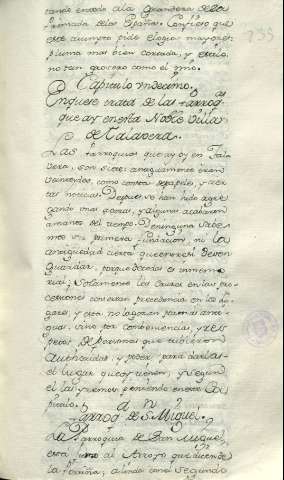 tando entodo ala Grandeza de la
Primada delas Españas. Confieso que
este asumpto pide elogios mayores
pluma mas bien cortada, y estilo
no tan grosero como el mio.
Capitulo Vndecimo.
Enquese trata de las Parroq.as
que ay enesta Noble Villa
de Talavera.
Las Parroquias que ay oy en Tala
vera, son siete: antiguamente eran
como consta depapeles, y cier
tas noticias. Despues se han hido agre
gando unas aotras, y algunas acabaron
amanos del tiempo. De ninguna sabe
mos su primera fundacion, ni la
antiguedad cierta que entre si deven
Guardar, porque detodas es inmemo
rial; solamente las Cruzes en las pro
cesiones conservan precedencia en los lu
gares, y esto no lo gozan por mas anti
guas, sino por conbeniencias, y res
petos de Personas que tubieron
Authoridad, y poder para darlas
el lugar que oy tienen, y segun
el las yremos poniendo eneste Ca
pitulo.
Parroq.a de S.n Miguel.
La Parroquia de San Miguel
esta junto al Arroyo que dicen de
la Portiña, aunda con el segundo
235